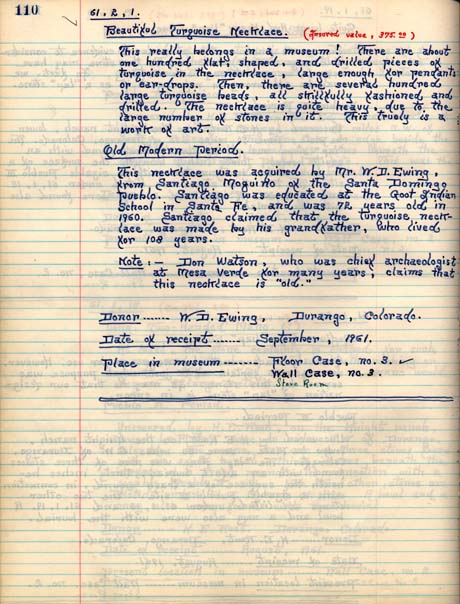 110
61.2.1.
Beautiful Turquoise Necklace. (Insured value, 375.00)
This really belongs in a museum! There are about
one hundred flat, shaped, and drilled pieces of
turquoise in the necklace, large enough for pendants
or ear-drops. Then, there are several hundred
large turquoise beads, all skillfully fashioned and
drilled. The necklace is quite heavy, due to the
large number of stones in it. This truely is a
work of art.
Old Modern Period.
This necklace was acquired by Mr. W.D. Ewing,
from Santiago Moquino of the Santa Domingo
Pueblo. Santiago was educated at the Goot Indian
School in Santa Fe, and was 72 years old in
1960. Santiago claimed that the turquoise neck-
lace was made by his grandfather, who lived
for 108 years.
Note:- Don Watson, who was chief archaeologist
at Mesa Verde for many years, claims that
this necklace is "old."
Donor ------ W.D. Ewing, Durango, Colorado.
Date of receipt ----- September, 1961.
Place in museum ------- Floor Case, no. 3. ✓
Wall Case, no. 3.
Store Room